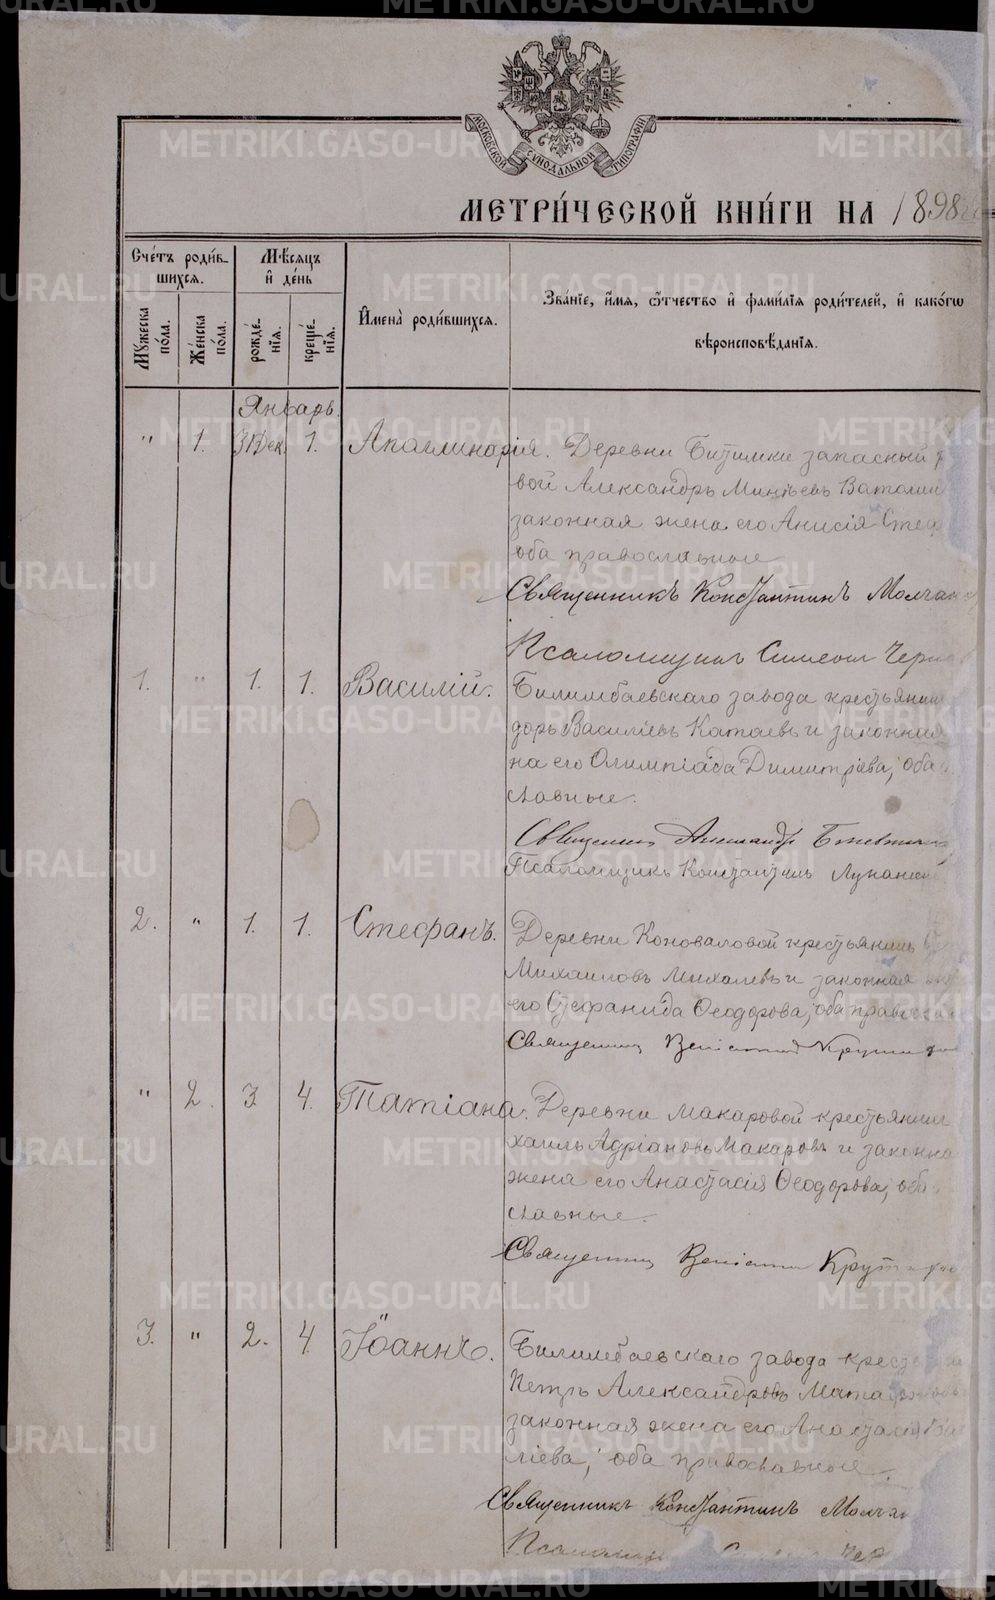 МОСКОВСКОЙ СѴНОДАЛЬНОЙ ТИПОГРАФИИ
МЕТРИ́ЧЕСКОЙ КНИ́ГИ НА 1898
Сче́тъ роди́в-
шихся.
Мѣ́сяцъ
и҆ де́нь
И҆мена̀ роди́вшихся.
Зва́нїе, и҆́мя, ѻ҆́тчество и҆ фами́лїя роди́телей, и҆ како́гѡ
вѣроисповѣ́данїя.
Мꙋ́жеска
по́ла.
Же́нска
по́ла.
рожде́-
нїя.
креще́-
нїя.
Январь.
" 1. 31 Дек. 1. Аполлинарія. Деревни Битимки запасный
вой Александръ Минѣевъ Ватолин
законная жена его Анисія Стеф
оба православные
Священникъ Константинъ Молчан
Псаломщикъ Симеонъ Черн
1. " 1. 1. Василій. Билимбаевскаго завода крестьянин
доръ Василіевъ Катаевъ и законная
на его Олимпіада Димитріева, оба
славные.
Священникъ Александръ
Псаломщикъ Константинъ Лукан
2. " 1. 1. Стефанъ. Деревни Коноваловой крестьянинъ
Михаиловъ Михалевъ и законная
его Стефанида Ѳеодорова, оба правосла
Священникъ
" 2. 3 4. Татіана. Деревни Макаровой крестьянин
хаилъ Адріановъ Макаровъ и законна
жена его Анастасія Ѳеодорова, оба
славные.
Священникъ
3. " 2. 4. Іоаннъ. Билимбаевскаго завода крестьян
Петръ Александровъ
законная жена его Анастасія Ва
ліева, оба православные.
Священникъ Константинъ Молчан
Псаломщи Чер
METRIKI.GASO-URAL.RU